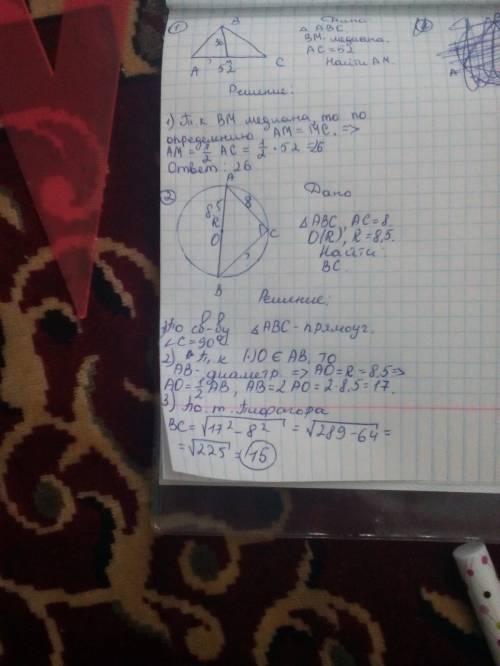 1
B
36
A
M
C
52
Дано
△ ABC.
BM - медиана.
AC = 52
Найти AM.
Решение:
1) Т. к BM медиана, то по
определению AM = MC. =>
AM = 1/2 AC = 1/2 · 52 = 26
Ответ: 26
2
A
8,5
8
R
O
C
?
B
Дано
△ABC, AC = 8.
O(R), R = 8,5.
Найти:
BC.
Решение:
1) По св-ву △ABC - прямоуг.
∠C = 90°
2) Т. к (·)O ∈ AB, то
AB - диаметр => AO = R = 8,5 =>
AO = 1/2 AB, AB = 2 AO = 2 · 8,5 = 17.
3) По т. Пифагора
BC = √17² - 8² = √289 - 64 =
= √225 = 15